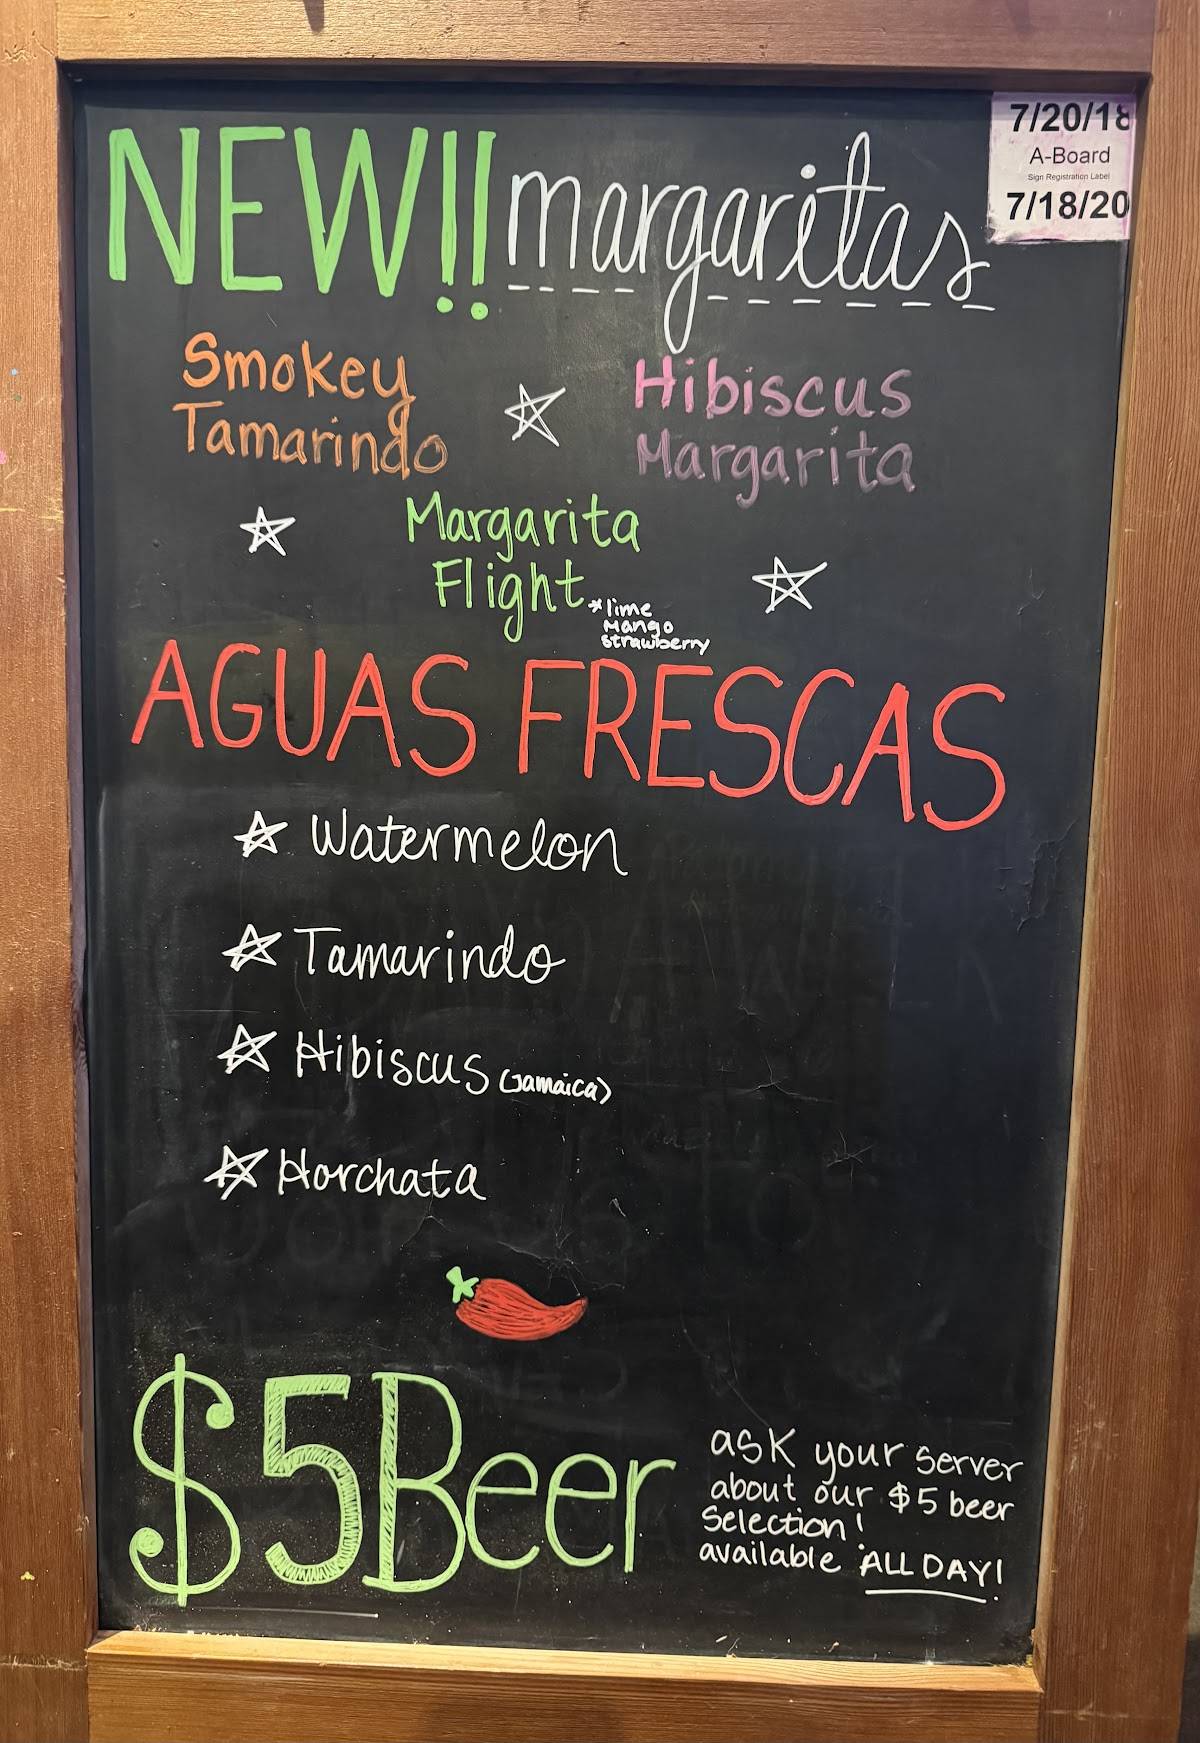 NEW!! margaritas
7/20/18
A-Board
Sign Registration Label
7/18/20
Smokey
Tamarindo
Hibiscus
Margarita
Margarita
Flight
*lime
Mango
Strawberry
AGUAS FRESCAS
Watermelon
Tamarindo
Hibiscus (Jamaica)
Horchata
$5 Beer
ask your server
about our $5 beer
Selection!
available ALL DAY!